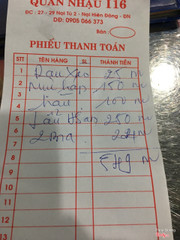 QUÁN NHẬU 116
ĐC : 27 - 29 Nại Tú 2 - Nại Hiên Đông - ĐN
DĐ: 0905 066 373
Bàn:
PHIẾU THANH TOÁN
STT TÊN HÀNG SL THÀNH TIỀN
1 Rau Xào 25
2 Mực hấp 150
3 hàu 100
4 Lẩu 250
5 2 Bia
6
7
8
9
10
11
12
13